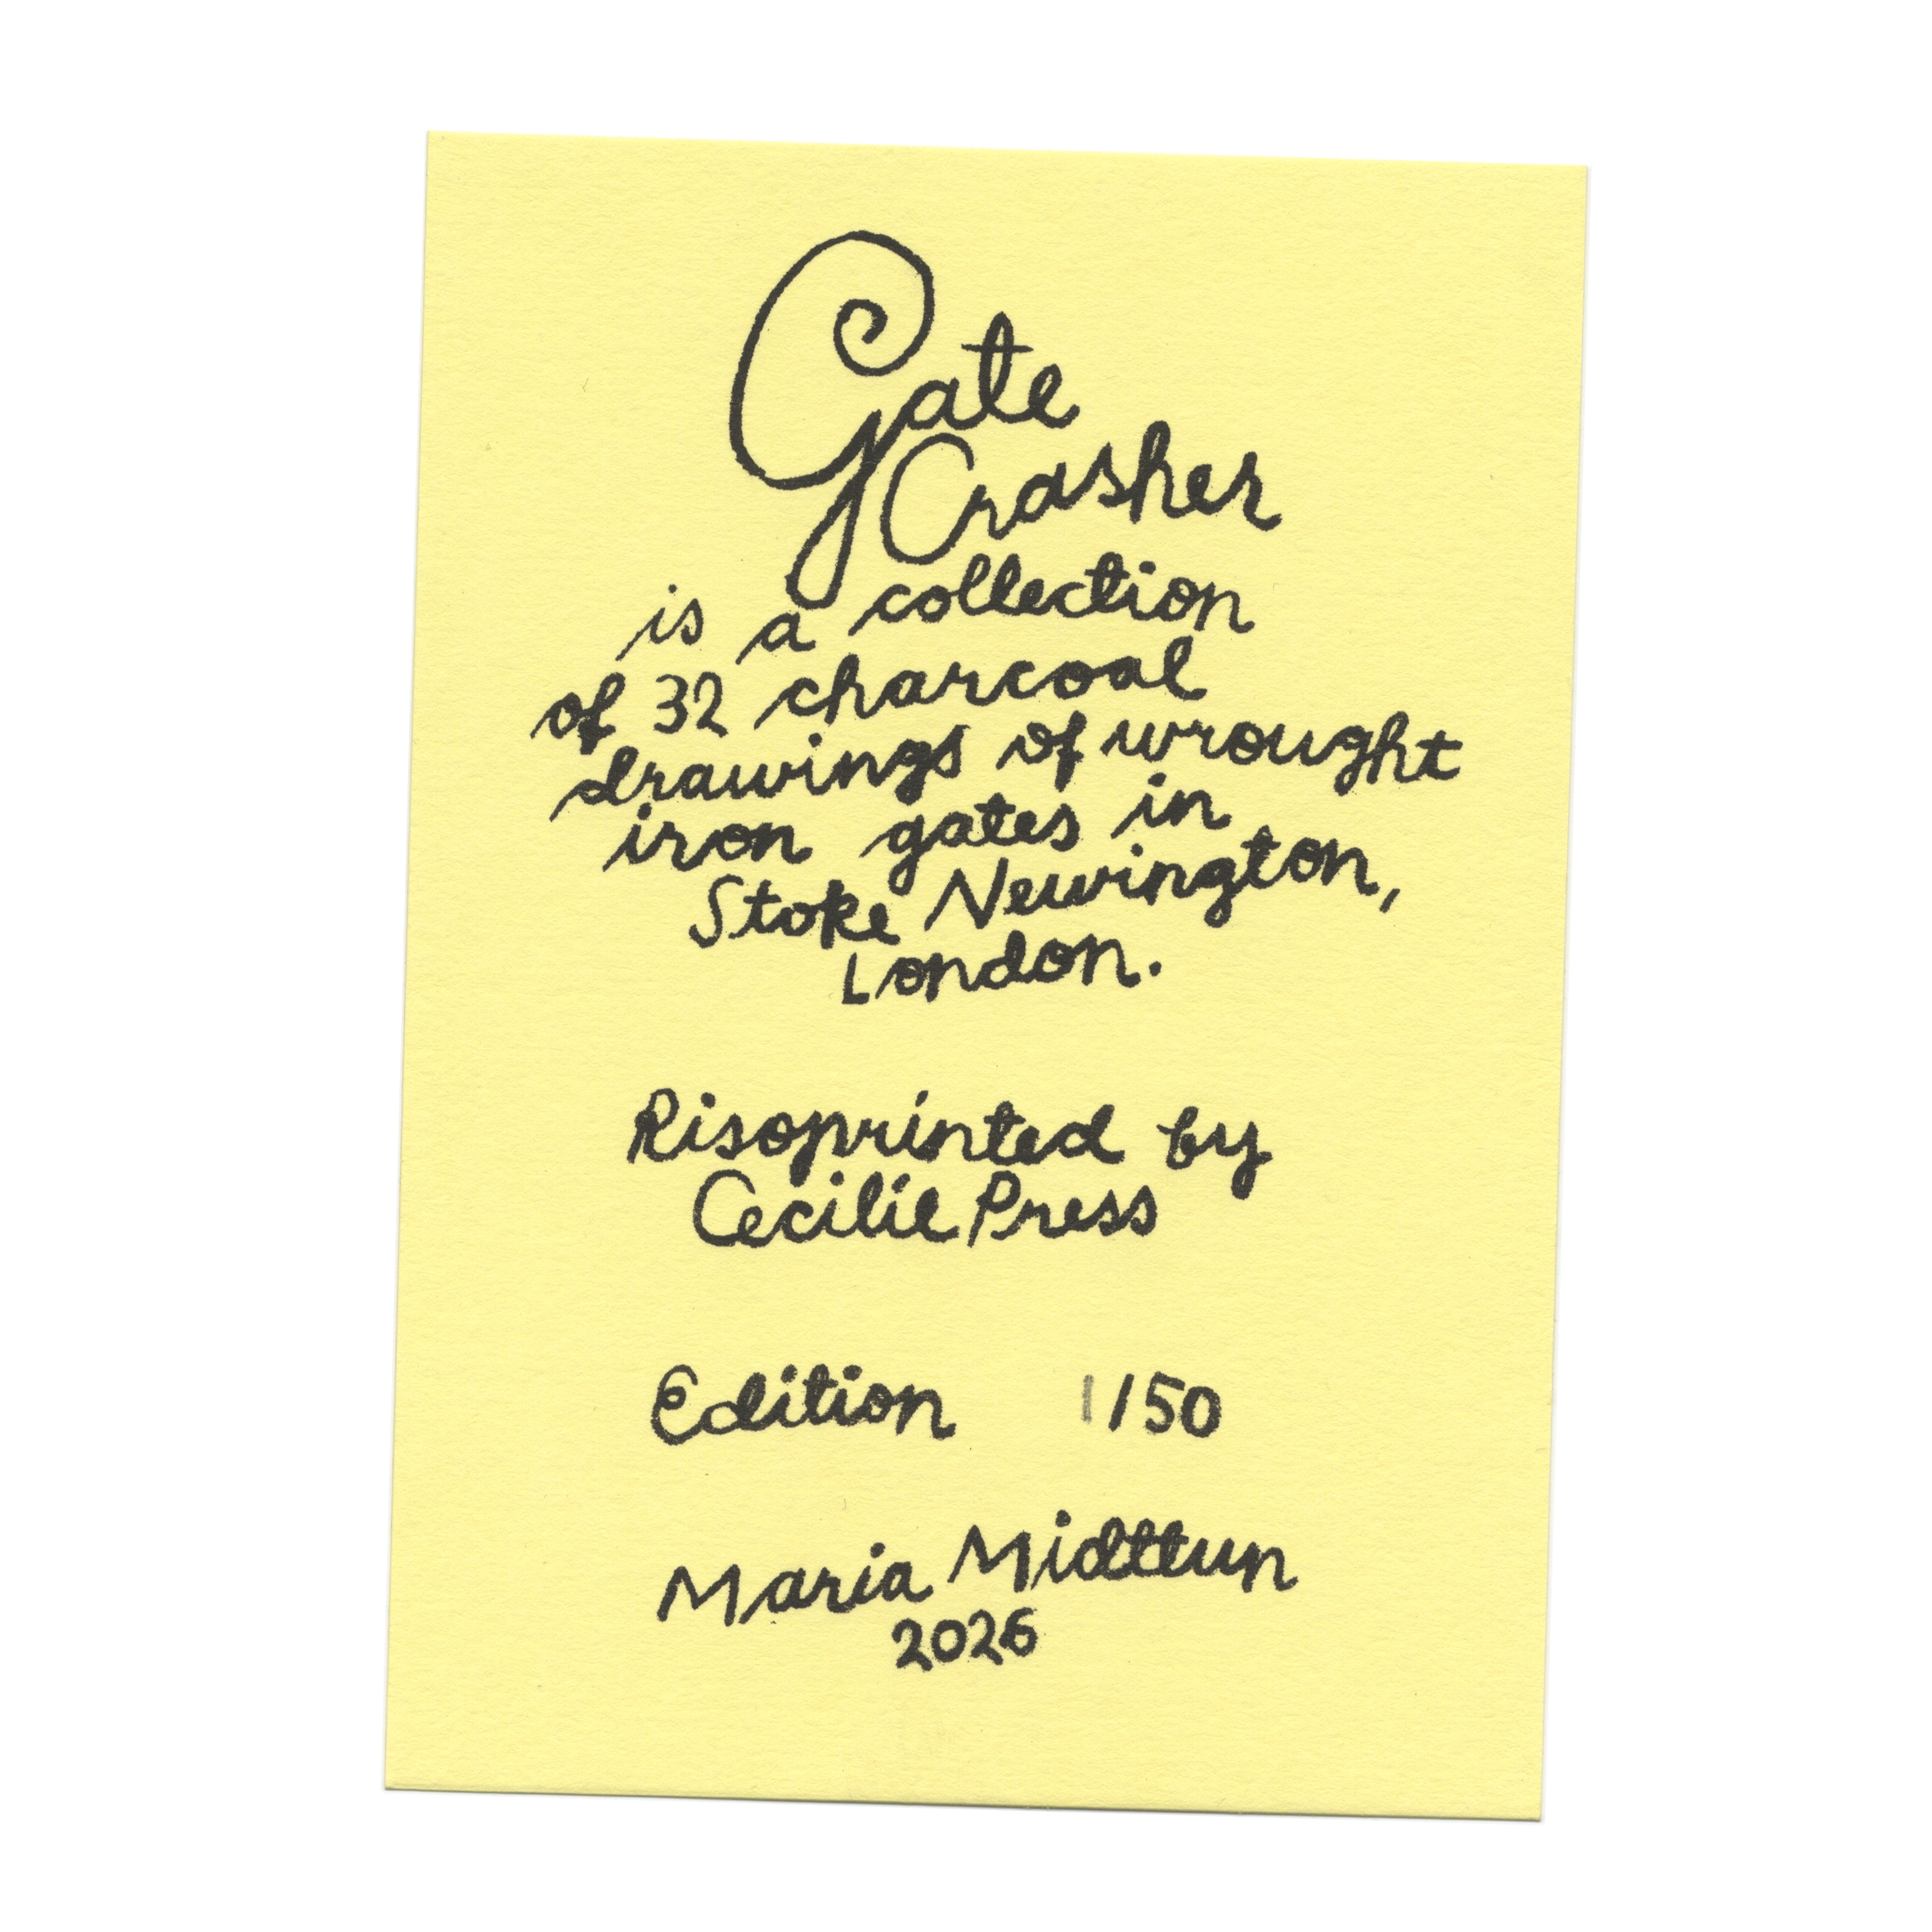 Gate
Crasher
is a collection
of 32 charcoal
drawings of wrought
iron gates in
Stoke Newington,
London.
Risoprinted by
Cecilie Press
Edition 1/50
Maria Midttun
2026